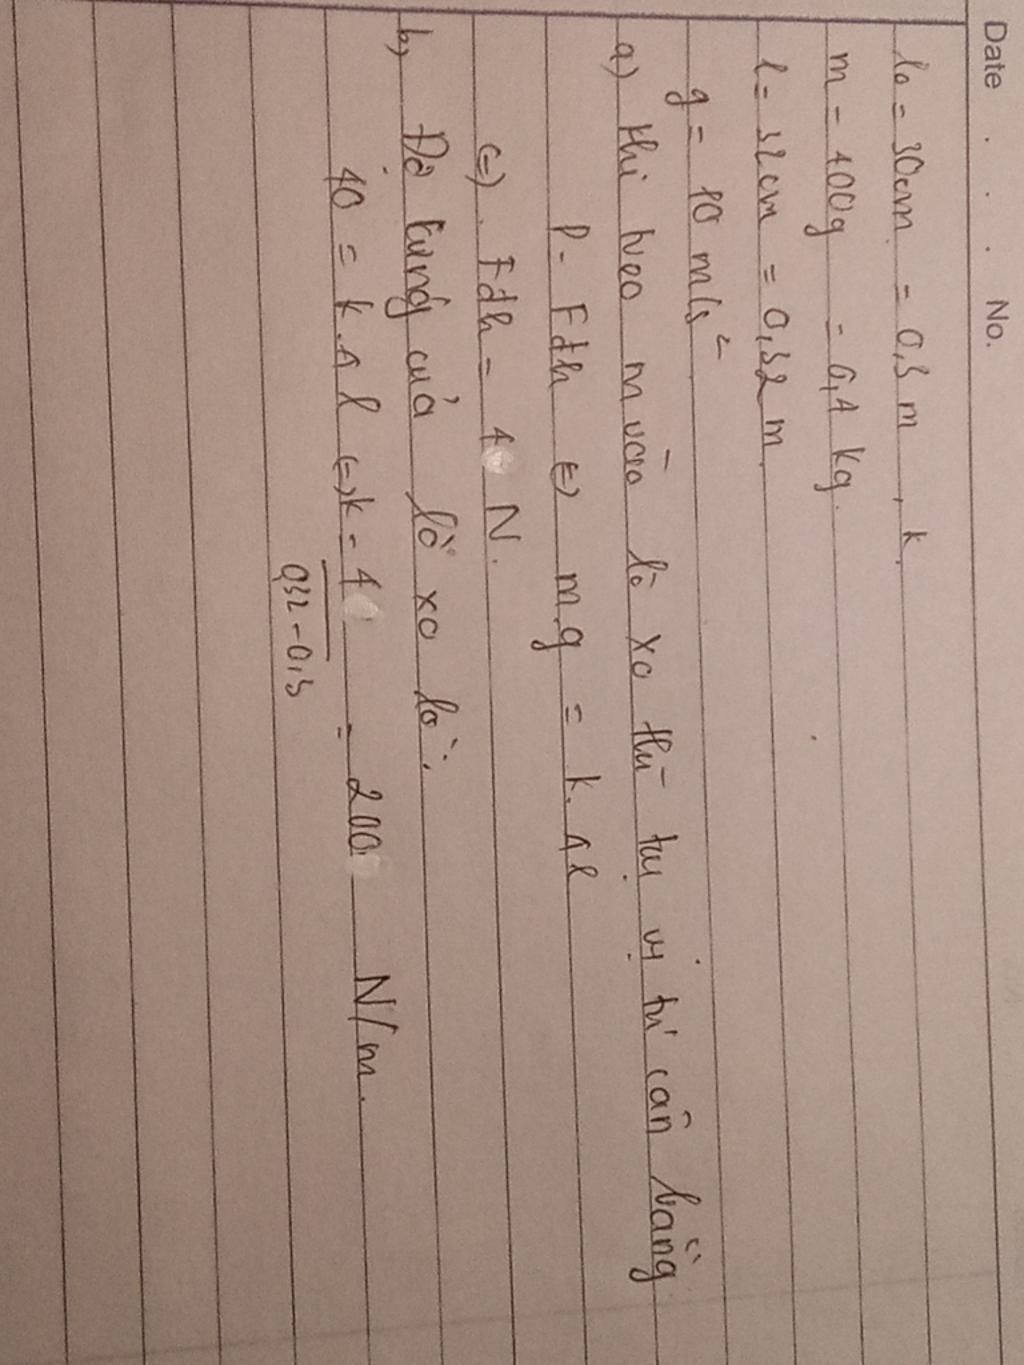 Date . . . No.
l₀ = 30cm = 0,3 m, k
m = 400g = 0,4 kg.
l = 32cm = 0,32 m.
g = 10 m/s²
a) khi treo m vào lò xo thì tại vị trí cân bằng
P = Fđh (=) m.g = k.Δl
(=) Fđh = 4 N.
b) Độ cứng của lò xo là:
40 = k.Δl (=) k = 4 / 0,32 - 0,3 = 200 N/m.